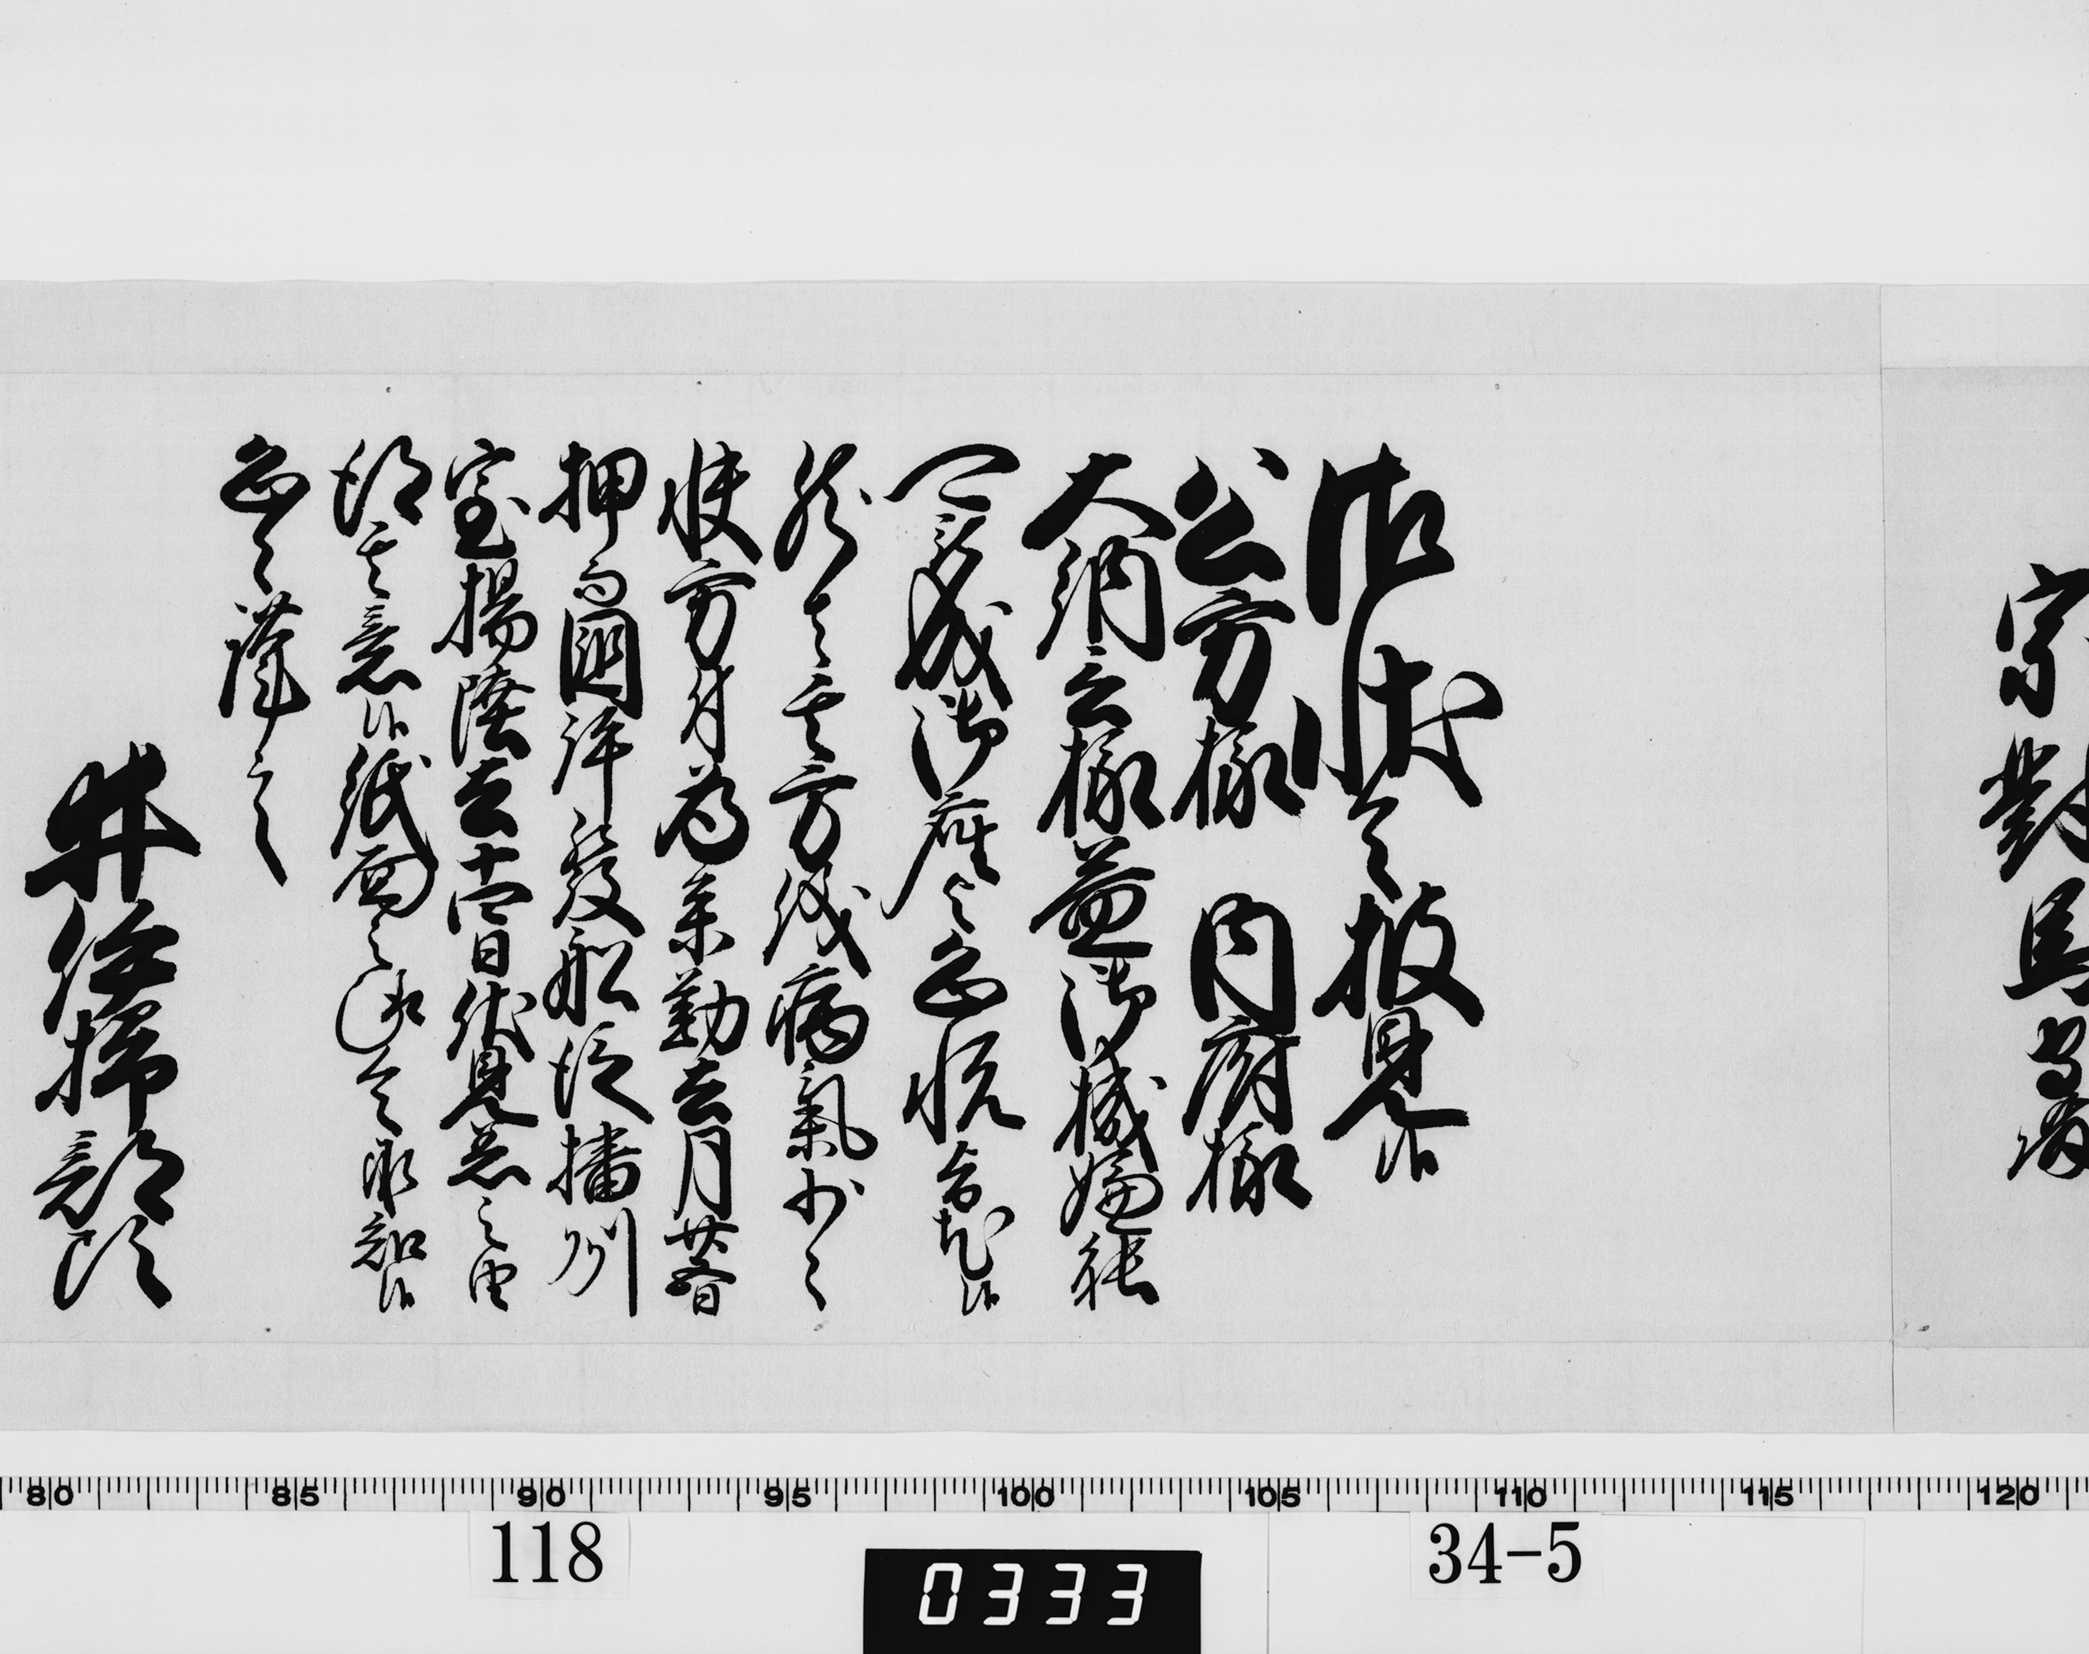 宗對馬守殿
御状令披見候
公方様 内府様
大納言様益御機嫌能
被成御座之恐悦旨尤候
然者其方儀病気少々
快方付為参勤去月廿五日
押而國許發船従播州
室揚陸去十四日伏見着之由
得其意候紙面之趣令承知候
恐々謹言
井伊掃部頭
118
34-5
0333
80 85 90 95 100 105 110 115 120